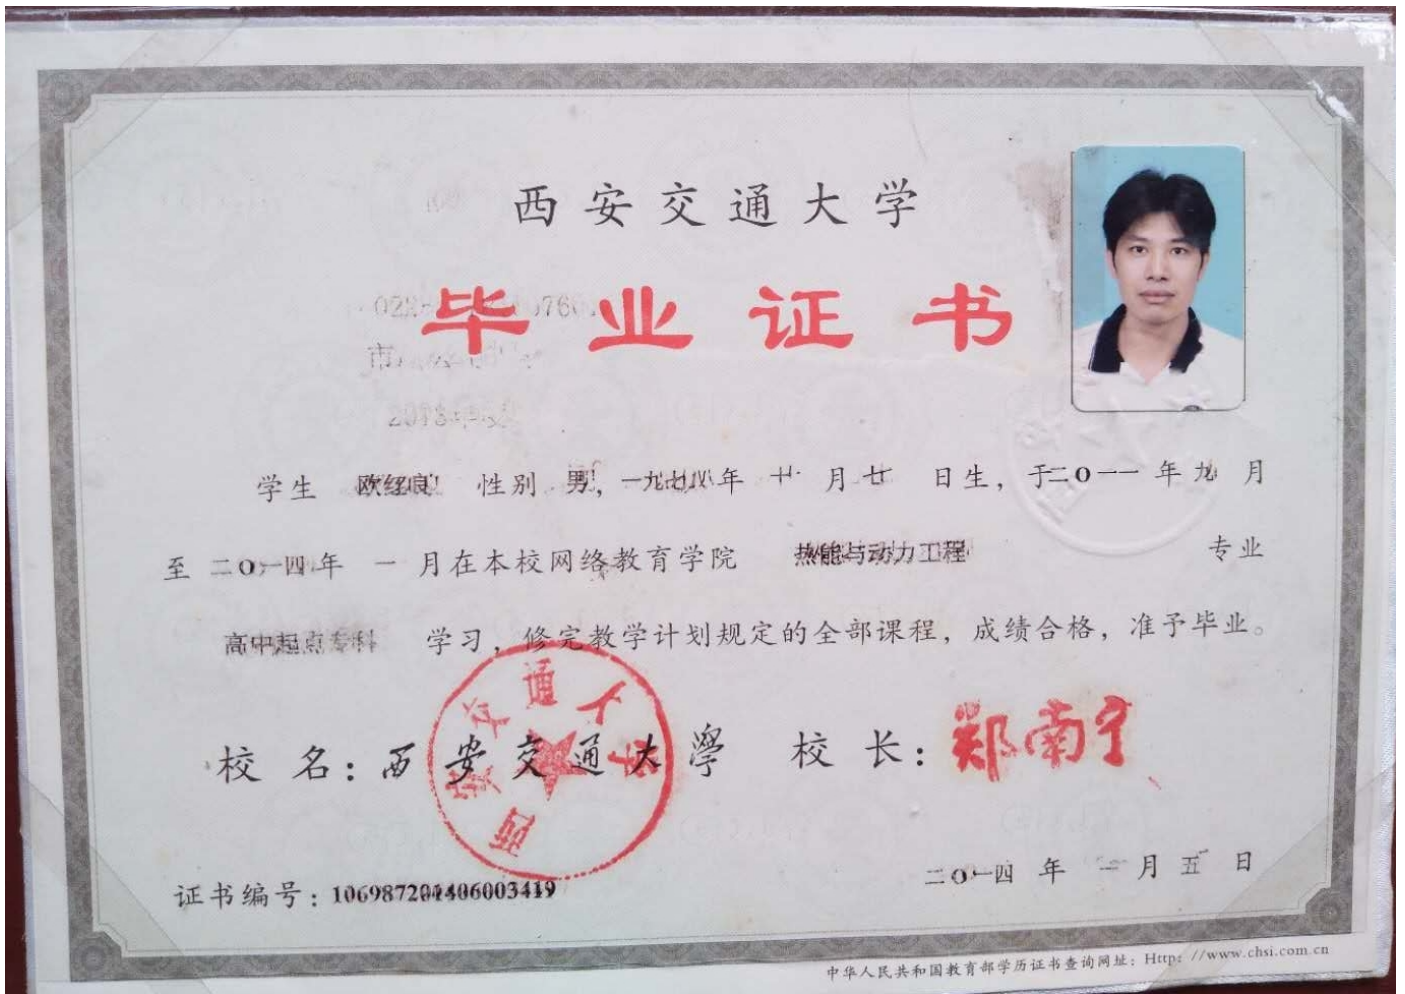 西安交通大学
毕业证书
学生 欧红良 性别 男，一九七八年 十 月 七 日生，于二O一一 年 九 月
至 二O一四 年 一 月在本校网络教育学院 热能与动力工程 专业
高中起点专科 学习，修完教学计划规定的全部课程，成绩合格，准予毕业。
校 名：西安交通大學 校 长：郑南宁
西安交通大学
二O一四 年 一 月 五 日
证书编号：106987201406003419
中华人民共和国教育部学历证书查询网址：Http：//www.chsi.com.cn